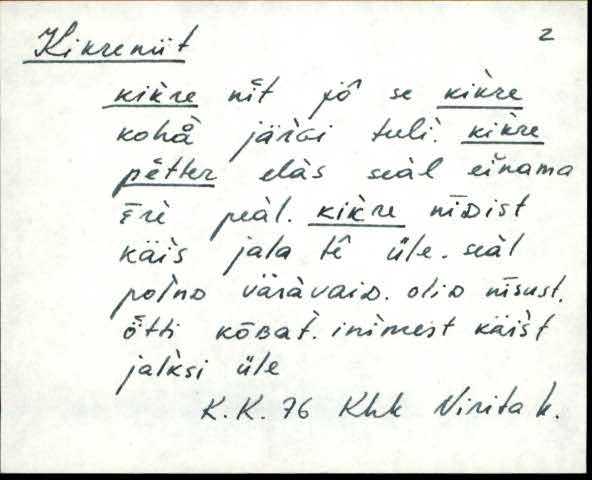 Kikreniit
2
kikre nīt jo᷈ se kikre
kohà järGi tuli. kikre
pētter elàs seàl eìnama
ǟrè peàl. kikre nīDist
käis jala tē üle. seàl
polnD väràvaiD. oliD nīsust.
ȫtti kōBaD. inìmest käist
jalksi üle
K.K. 76 Khk Virita k.